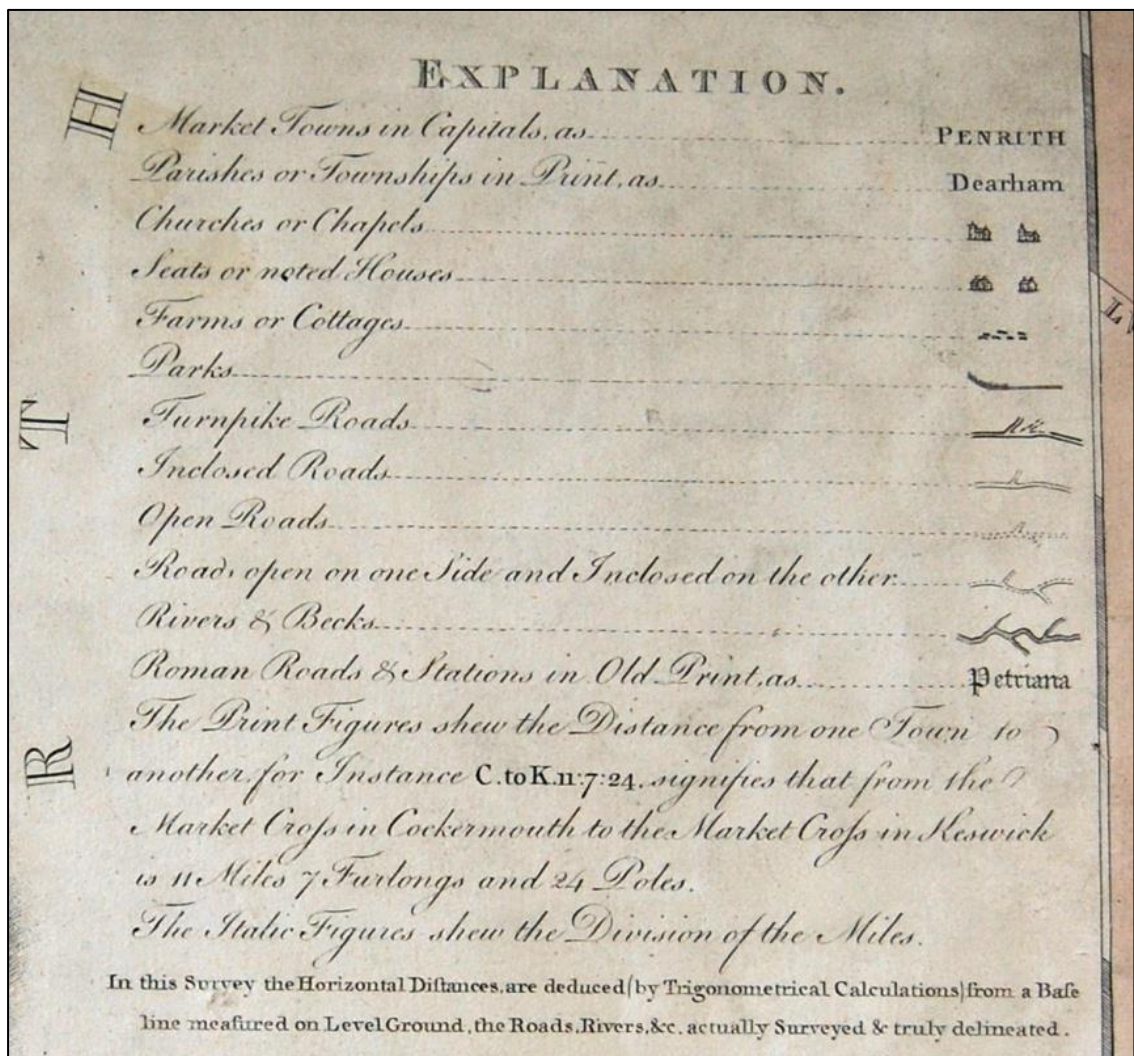 EXPLANATION.
H
Market Towns in Capitals, as PENRITH
Parishes or Townships in Print, as Dearham
Churches or Chapels
Seats or noted Houses
Farms or Cottages
Parks
T
Turnpike Roads
Inclosed Roads
Open Roads
Roads open on one Side and Inclosed on the other
Rivers & Becks
Roman Roads & Stations in Old Print, as Petriana
R
The Print Figures shew the Distance from one Town to
another, for Instance C. to K. 11:7:24, signifies that from the
Market Croſs in Cockermouth to the Market Croſs in Keswick
is 11 Miles 7 Furlongs and 24 Poles.
The Italic Figures shew the Division of the Miles.
In this Survey the Horizontal Diſtances, are deduced (by Trigonometrical Calculations) from a Baſe
line meaſured on Level Ground, the Roads, Rivers, &c. actually Surveyed & truly delineated.